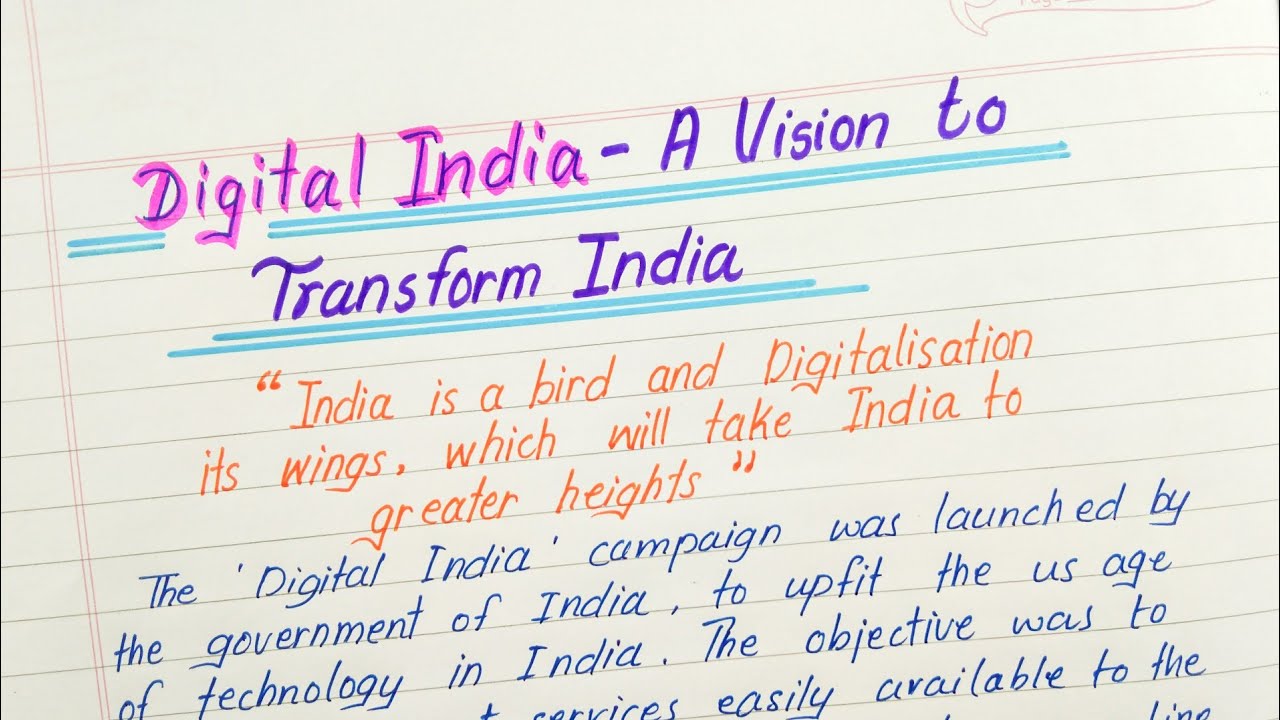 Digital India - A Vision to
Transform India
“ India is a bird and Digitalisation
its wings, which will take India to
greater heights ”
The 'Digital India' campaign was launched by
the government of India, to upfit the us age
of technology in India. The objective was to
services easily available to the
line